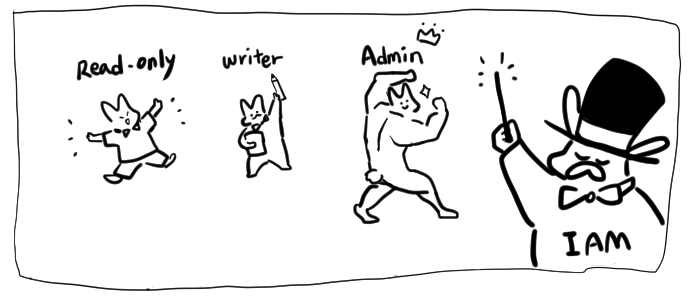 Read-only
writer
Admin
I AM